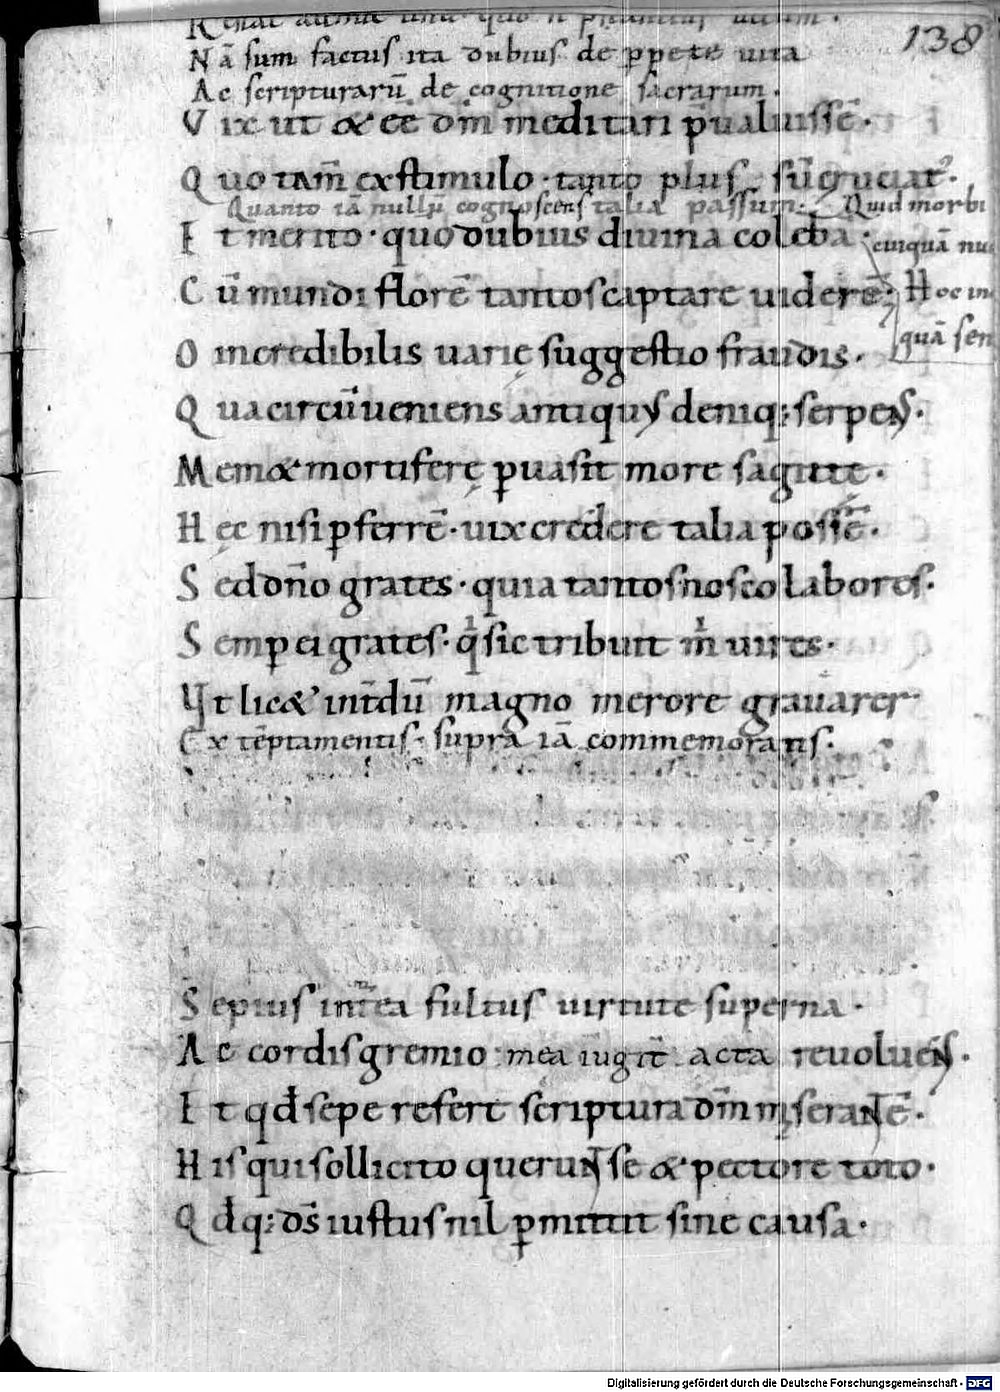 138
Nā sum factus ita dubius de ꝑpete uita
Ac scripturarū de cognitione sacrarum.
Vix ut & eē dm̄ meditari p̄ualuissē.
Quo tam̄ ex stimulo · tanto plus sū cruciat᷒.
Quanto iā nullū cognoscens talia passum. Quid morbi
Et merito · quo dubius diuina coleba cuiquā nu
Cū mundi florē tantos captare uiderē. Hoc in
quā sen
O incredibilis uarię suggestio fraudis.
Qua circūueniens antiquus deniq; serpens.
Mem & mortiferę ꝑuasit more sagittę.
Hęc nisi ꝑferrē · uix credere talia possē.
Sed dn̄o grates · quia tantos nosco labores.
Semp ei grates · qͥ sic tribuit m̍ uires.
Vt lic& int̄dū magno merore grauarer
Ex tēptamentis supra iā commemoratis.
Sepius int̄ea fultus uirtute superna.
Ac cordis gremio mea iugit̄ acta reuoluens.
Et qđ sepe refert scriptura dm̄ miserantē.
His qui sollicito querunt se & pectore toto.
Qđq; ds̄ iustus nil ꝑmittit sine causa.
Digitalisierung gefördert durch die Deutsche Forschungsgemeinschaft - DFG